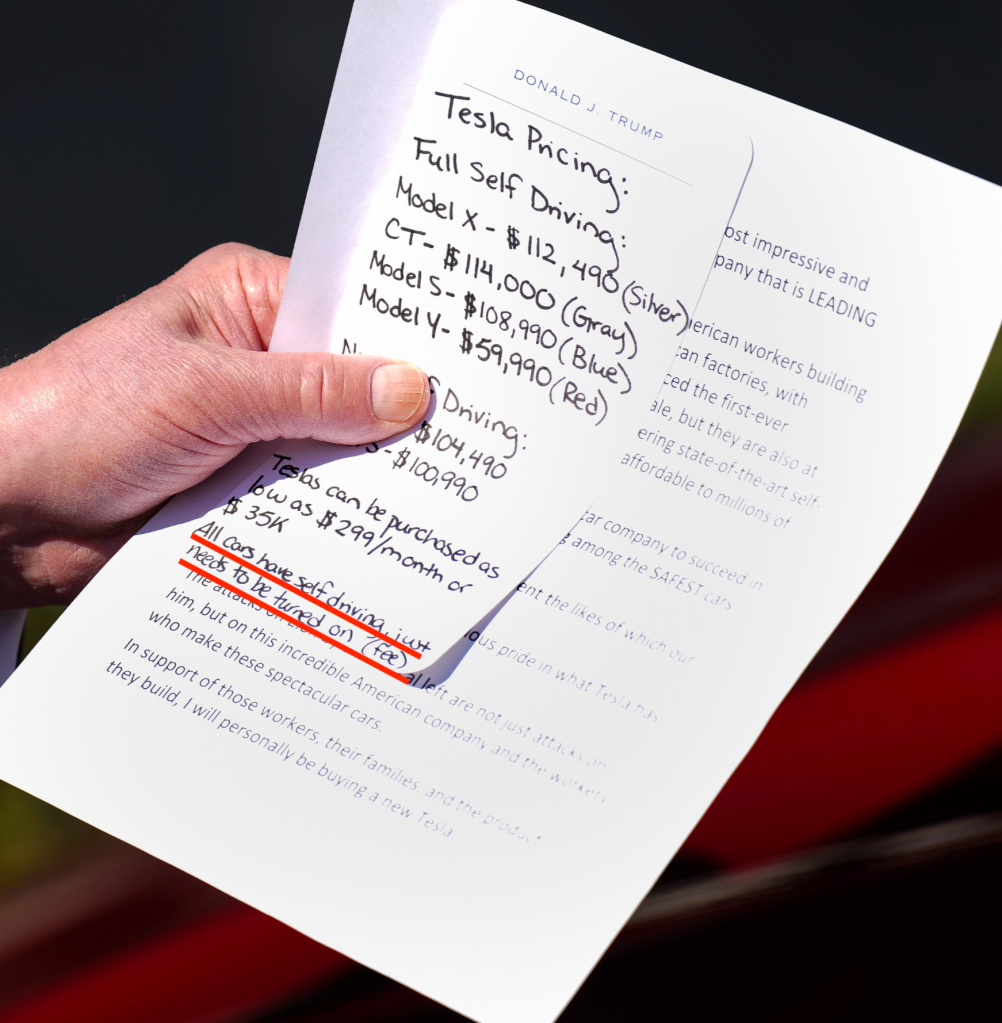 DONALD J. TRUMP
Tesla Pricing:
Full Self Driving:
Model X - $112,490 (Silver)
CT- $114,000 (Gray)
Model S- $108,990 (Blue)
Model Y- $59,990 (Red)
Driving:
$104,490
- $100,990
Teslas can be purchased as
low as $299/month or
$35K
All cars have self driving, just
needs to be turned on (Fee)
ost impressive and
pany that is LEADING
erican workers building
an factories, with
ced the first-ever
ale, but they are also at
ering state-of-the-art self-
affordable to millions of
ar company to succeed in
among the SAFEST cars
ent the likes of which our
ous pride in what Tesla has
The attacks on
left are not just attacks on
him, but on this incredible American company and the workers
who make these spectacular cars.
In support of those workers, their families, and the product
they build, I will personally be buying a new Tesla